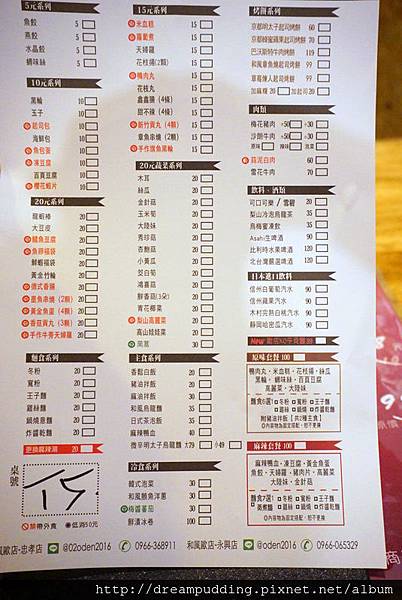 5元系列
魚餃 5
燕餃 5
水晶餃 5
蝦味絲 5
10元系列
黑輪 10
玉子 10
起司包 10
海鮮包 10
魚包蛋 10
凍豆腐 10
百頁豆腐 10
櫻花蝦片 10
20元系列
龍蝦棒 20
大豆皮 20
鱈魚豆腐 20
魚卵福袋 20
鮮蝦福袋 20
黃金竹輪 20
德式香腸 20
墨魚串燒 (2顆) 20
黃金魚蛋 (4顆) 20
香菇貢丸 (3顆) 20
手作牛蒡天婦羅 20
麵食系列
冬粉 20
寬粉 20
王子麵 20
雞絲麵 20
鍋燒意麵 20
炸醬乾麵 20
更換麻辣湯 20
桌號
禁帶外食 低消50元
15元系列
米血糕 15
蘿蔔煮 15
天婦羅 15
花枝揚(2顆) 15
鴨肉丸 15
花枝丸 15
鑫鑫腸 (4條) 15
甜不辣 (4條) 15
新竹貢丸 (4顆) 15
章魚串燒 (2顆) 15
手作摃魚黑輪 15
20元蔬菜系列
木耳 20
絲瓜 20
金針菇 20
玉米筍 20
大陸妹 20
秀珍菇 20
杏鮑菇 20
小黃瓜 20
茭白筍 20
鴻喜菇 20
鮮香菇(3朵) 20
青花椰菜 20
梨山高麗菜 20
高山娃娃菜 20
茼蒿 30
主食系列
香鬆白飯 20
豬油拌飯 20
麻油拌飯 20
和風烏龍麵 20
日式茶泡飯 20
麻辣鴨血 40
微辛明太子烏龍麵 大79 小49
冷食系列
韓式泡菜 30
和風鮪魚洋蔥 30
梅醬蕃茄 30
鮮漬冰卷 100
烤餅系列
京都明太子起司烤餅 60
京都蜂蜜蘋果起司烤餅 90
巴沃斯特牛肉烤餅 119
和風章魚燒起司烤餅 99
草莓情人起司烤餅 99
加麻糬 20 加起司 20
肉類
梅花豬肉 +50 +30
沙朗牛肉 +50 +30
原味 辣味 泡菜
蒜泥白肉 50
雪花牛肉 70
飲料、酒類
可口可樂 / 雪碧 20
梨山冷泡烏龍茶 35
烏梅蜜凍飲 35
Asahi生啤酒 90
比利時水果啤酒 120
北台灣麗崑啤酒 120
日本進口飲料
信州白葡萄汽水 90
信州蘋果汽水 90
木村完熟白桃汽水 90
靜岡哈密瓜汽水 50
New
原味套餐 100
鴨肉丸，米血糕，花枝揚，絲瓜
黑輪，蝦味絲，百頁豆腐
高麗菜，大陸妹
麵食6選1 冬粉 寬粉 王子麵
雞絲 鍋燒 炸醬乾麵
附豬油拌飯【共2種主食】
內容物為固定搭配，恕不更換
麻辣套餐 100
麻辣鴨血，凍豆腐，黃金魚蛋
魚餃，天婦羅，豬肉片，高麗菜
大陸妹，金針菇
麵食7選1 冬粉 寬粉 王子麵
雞絲 鍋燒 炸醬乾麵
內容物為固定搭配，恕不更換
風歐店-忠孝店 @02oden2016 0966-368911 和風歐店-永興店 @oden2016 0966-065329
http://dreampudding.pixnet.net/album